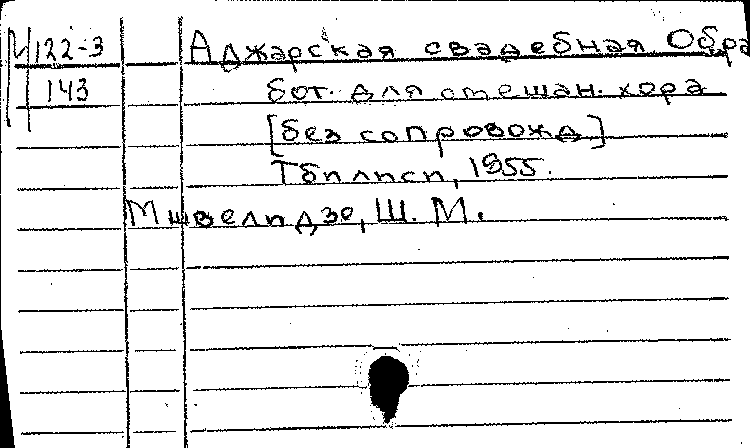 М 122-3
143
Аджарская свадебная Обра
бот. для смешан. хора
[без сопровожд]
Тбилиси, 1955.
Мшвелидзе, Ш. М.